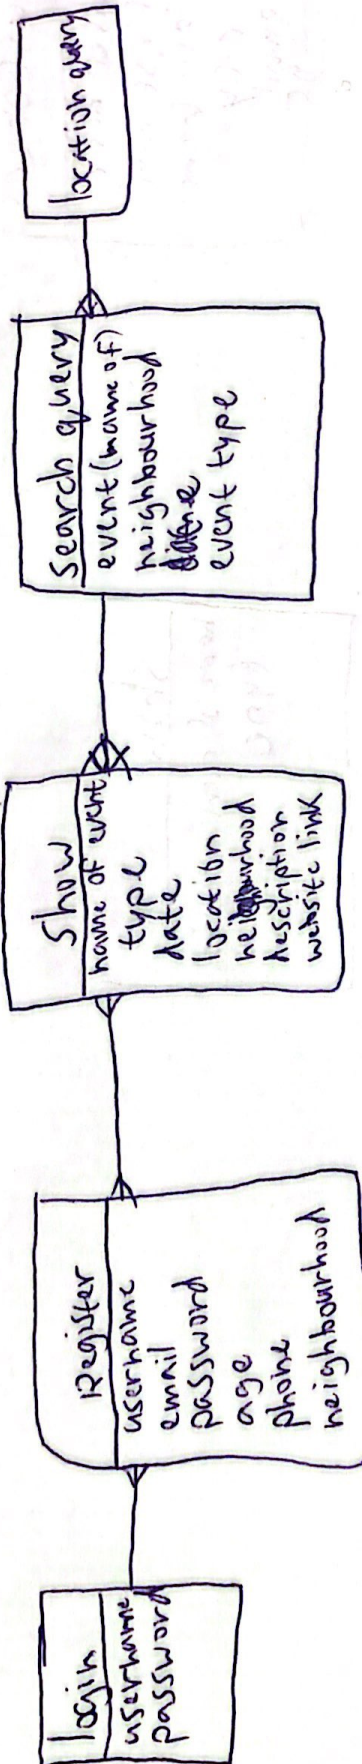 login
username
password
Register
username
email
password
age
phone
neighbourhood
Show
name of event
type
date
location
neighbourhood
description
website link
Search query
event (name of)
neighbourhood
event type
location query